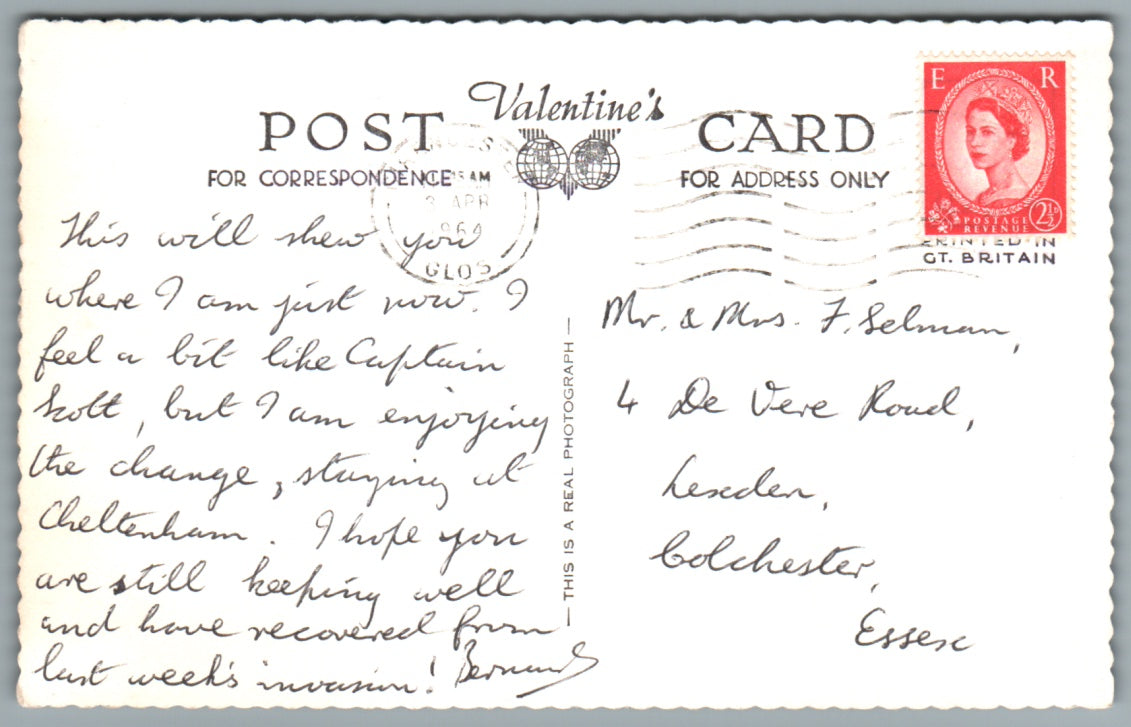 Valentine's
POST CARD
FOR CORRESPONDENCE
FOR ADDRESS ONLY
AM
3 APR
1964
GLOS
E R
POSTAGE
REVENUE
2½D
PRINTED IN
GT. BRITAIN
This will shew you
where I am just now. I
feel a bit like Captain
Scott, but I am enjoying
the change, staying at
Cheltenham. I hope you
are still keeping well
and have recovered from
last week's invasion! Bernard
— THIS IS A REAL PHOTOGRAPH —
Mr. & Mrs. F. Selman,
4 De Vere Road,
Lexden,
Colchester,
Essex